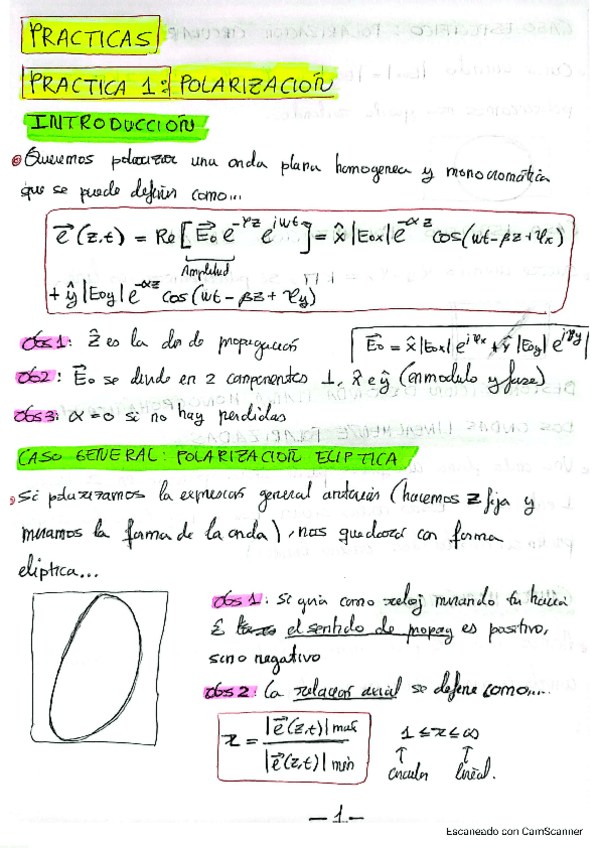 PRACTICAS
PRACTICA 1: POLARIZACIÓN
INTRODUCCIÓN
Queremos polarizar una onda plana homogenea y monocromática
que se puede definir como...
e⃗(z,t) = Re[E⃗₀ e^-γz e^jwt] = x̂ |E₀x| e^-αz cos(wt - βz + φx)
Amplitud
+ ŷ |E₀y| e^-αz cos(wt - βz + φy)
obs 1: ẑ es la dir de propagación
E⃗₀ = x̂ |E₀x| e^jφx + ŷ |E₀y| e^jφy
obs 2: E⃗₀ se divide en 2 componentes ⊥, x̂ e ŷ (en modulo y fase)
obs 3: α = 0 si no hay perdidas
CASO GENERAL: POLARIZACION ELIPTICA
Si polarizamos la expresión general anterior (hacemos z fija y
miramos la forma de la onda), nos quedará con forma
eliptica...
obs 1: Si guia como reloj mirando tu hacia
el sentido de propag es positivo,
sino negativo
obs 2: La relacion axial se define como....
r = |e⃗(z,t)| max / |e⃗(z,t)| min
1 ≤ r ≤ ∞
↑ ↑
circular lineal.
- 1 -
Escaneado con CamScanner